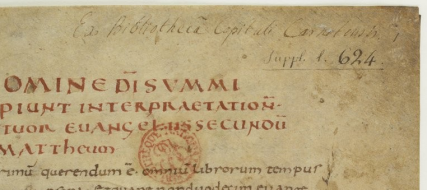 Ex Bibliothecâ Capituli Carnotensis
Suppl. l. 624.
OMINE D̅I SUMMI
PIUNT INTERPRAETATION̅
TUOR EUANGELIIS SECUNDU̅
MATTHEUM
rimu̅ querendum e̅ omniu̅ librorum tempus